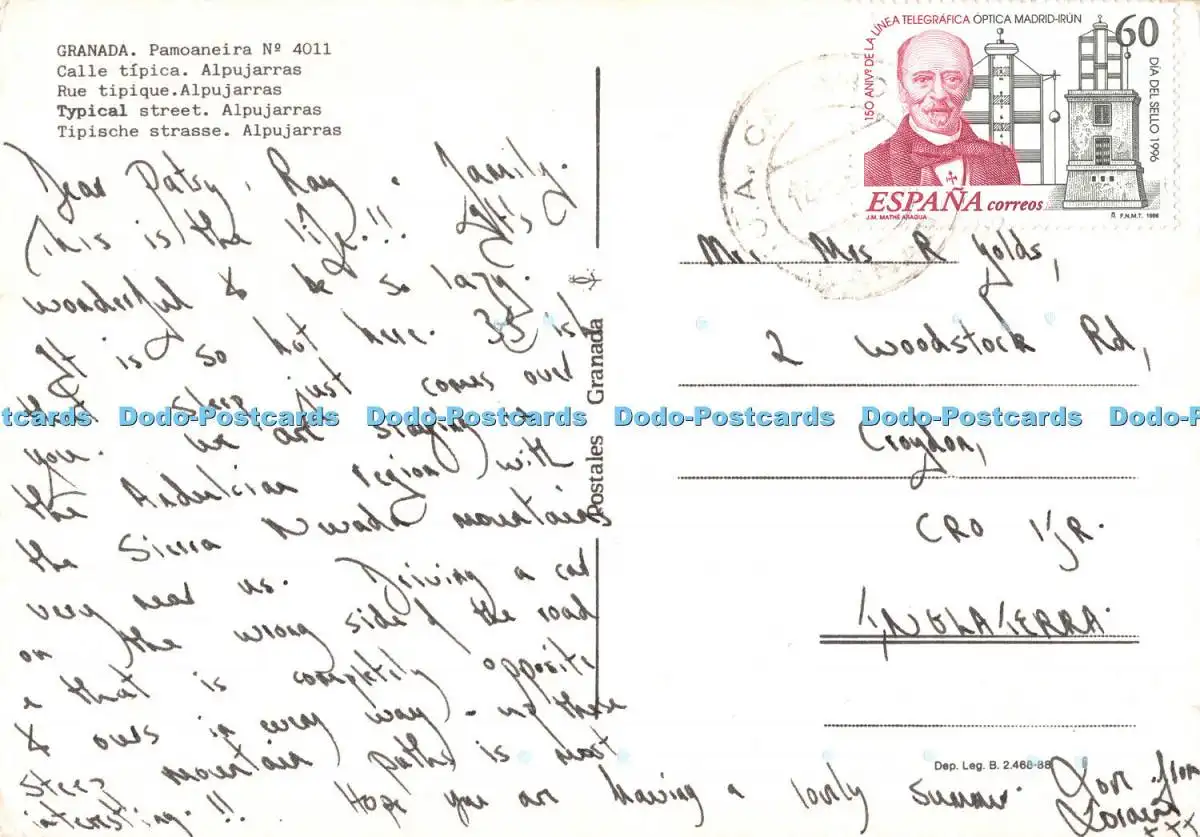 GRANADA. Pamoaneira Nº 4011
Calle típica. Alpujarras
Rue tipique.Alpujarras
Typical street. Alpujarras
Tipische strasse. Alpujarras
Dear Patsy, Ray & family.
This is the life!! It's
wonderful to be so lazy.
It is so hot here. 35 ish
that sleep just comes over
you. We are staying in
the Andulcian region with
the Sierra Nevada mountains
very near us. Driving a car
on the wrong side of the road
& that is completely opposite
to ours in every way - up these
steep mountain paths is most
interesting!! Hope you are having a lovely summer. Love from
xx
Postales Granada
150 ANIVº DE LA LÍNEA TELEGRÁFICA ÓPTICA MADRID-IRÚN
60
DÍA DEL SELLO 1996
ESPAÑA correos
J.M. MATHÉ ARAGUA
F.N.M.T. 1996
Mr. Mrs R Golds,
2 Woodstock Rd,
Croydon,
CRO 1JR.
INGLATERRA.
Dep. Leg. B. 2.468-88
Dodo-Postcards Dodo-Postcards Dodo-Postcards Dodo-Postcards